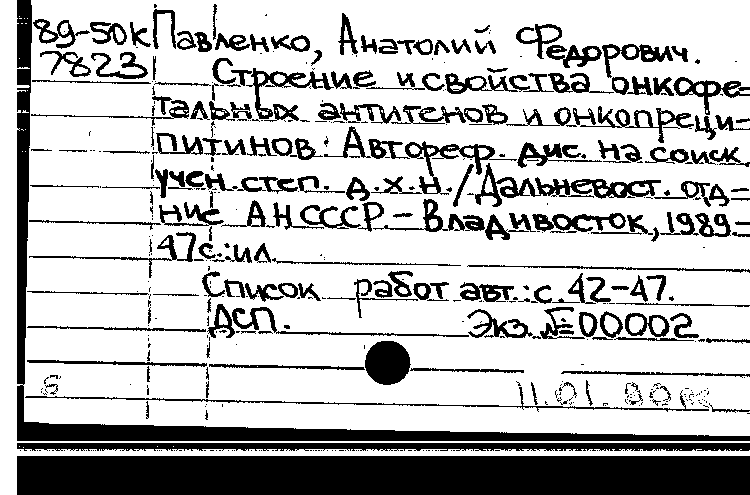 89-50к Павленко, Анатолий Федорович.
7823 Строение и свойства онкофе-
тальных антигенов и онкопреци-
питинов: Автореф. дис. на соиск.
учен. степ. д.х.н./Дальневост. отд-
ние АН СССР.-Владивосток, 1989-
47с.:ил.
Список работ авт.:с.42-47.
ДСП. Экз.№00002
11.01.90